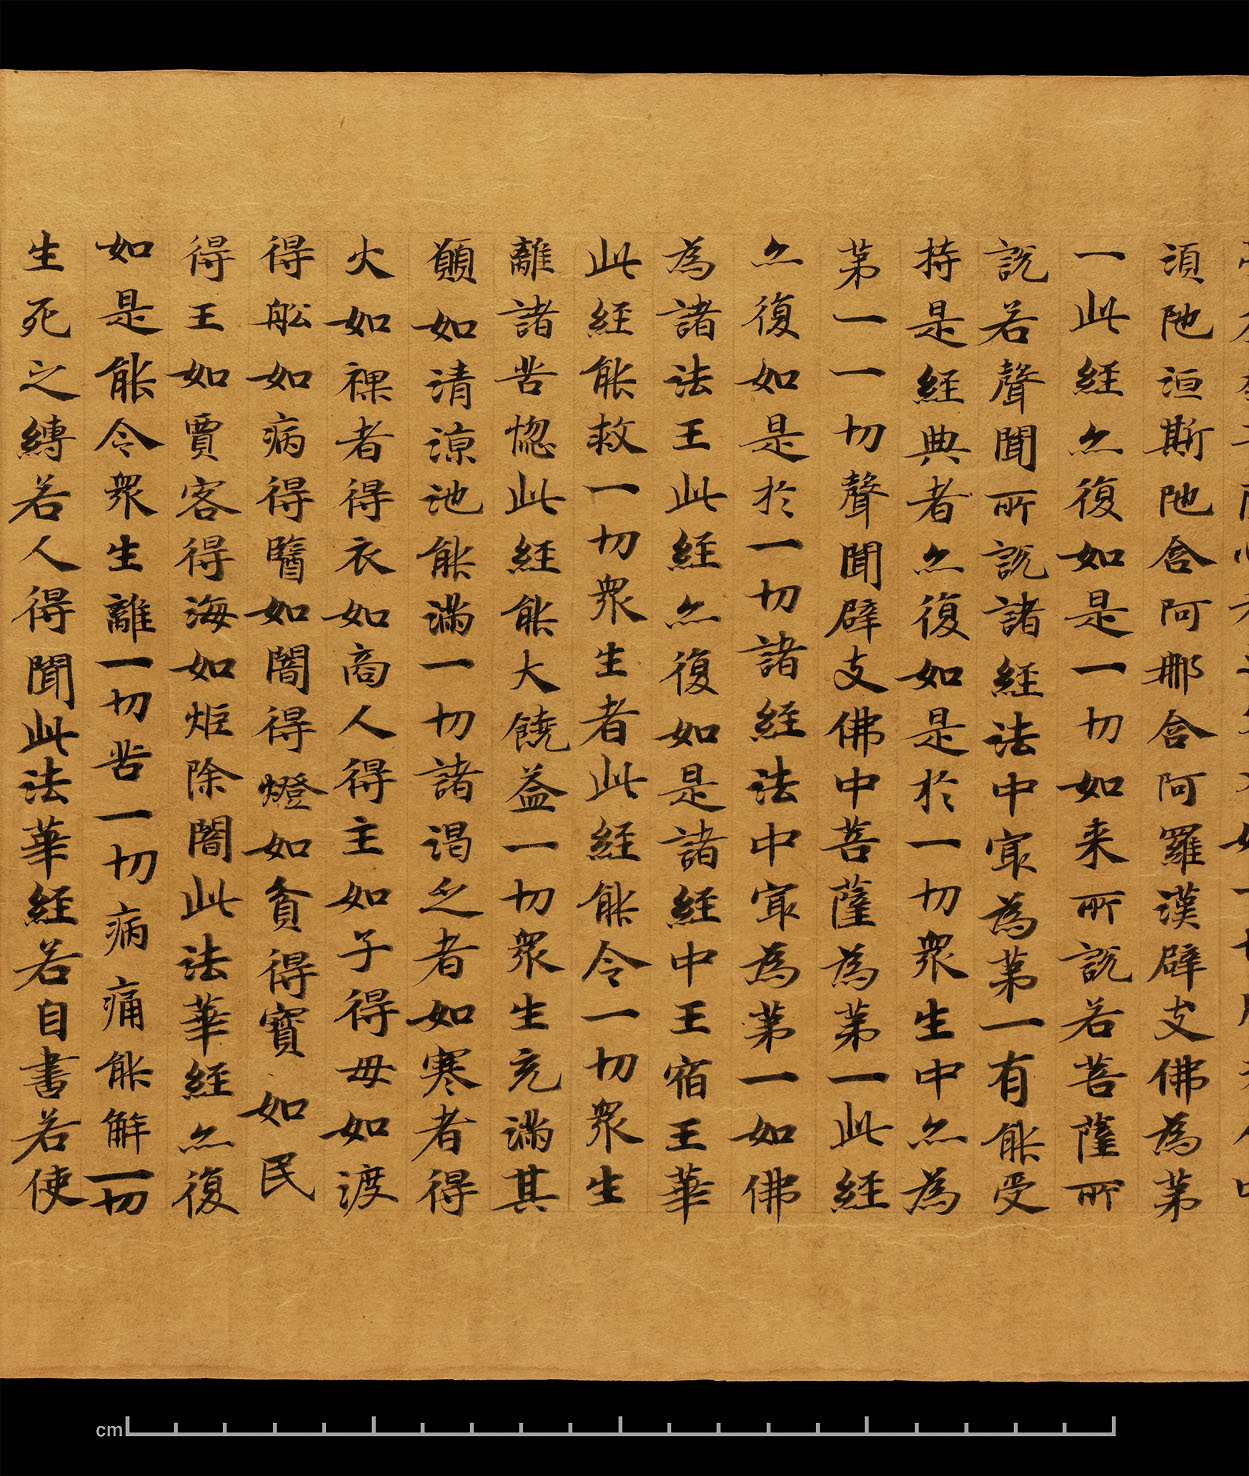 湏陁洹斯陁含阿那含阿羅漢辟支佛為第
一此經亦復如是一切如来所說若菩薩所
說若聲聞所說諸經法中冣為第一有能受
持是經典者亦復如是於一切衆生中亦為
第一一切聲聞辟支佛中菩薩為第一此經
亦復如是於一切諸經法中冣為第一如佛
為諸法王此經亦復如是諸經中王宿王華
此經能救一切衆生者此經能令一切衆生
離諸苦惱此經能大饒益一切衆生充滿其
願如清涼池能滿一切諸渴乏者如寒者得
火如裸者得衣如商人得主如子得母如渡
得舩如病得醫如闇得燈如貧得寶如民
得王如賈客得海如炬除闇此法華經亦復
如是能令衆生離一切苦一切病痛能解一切
生死之縛若人得聞此法華經若自書若使
cm